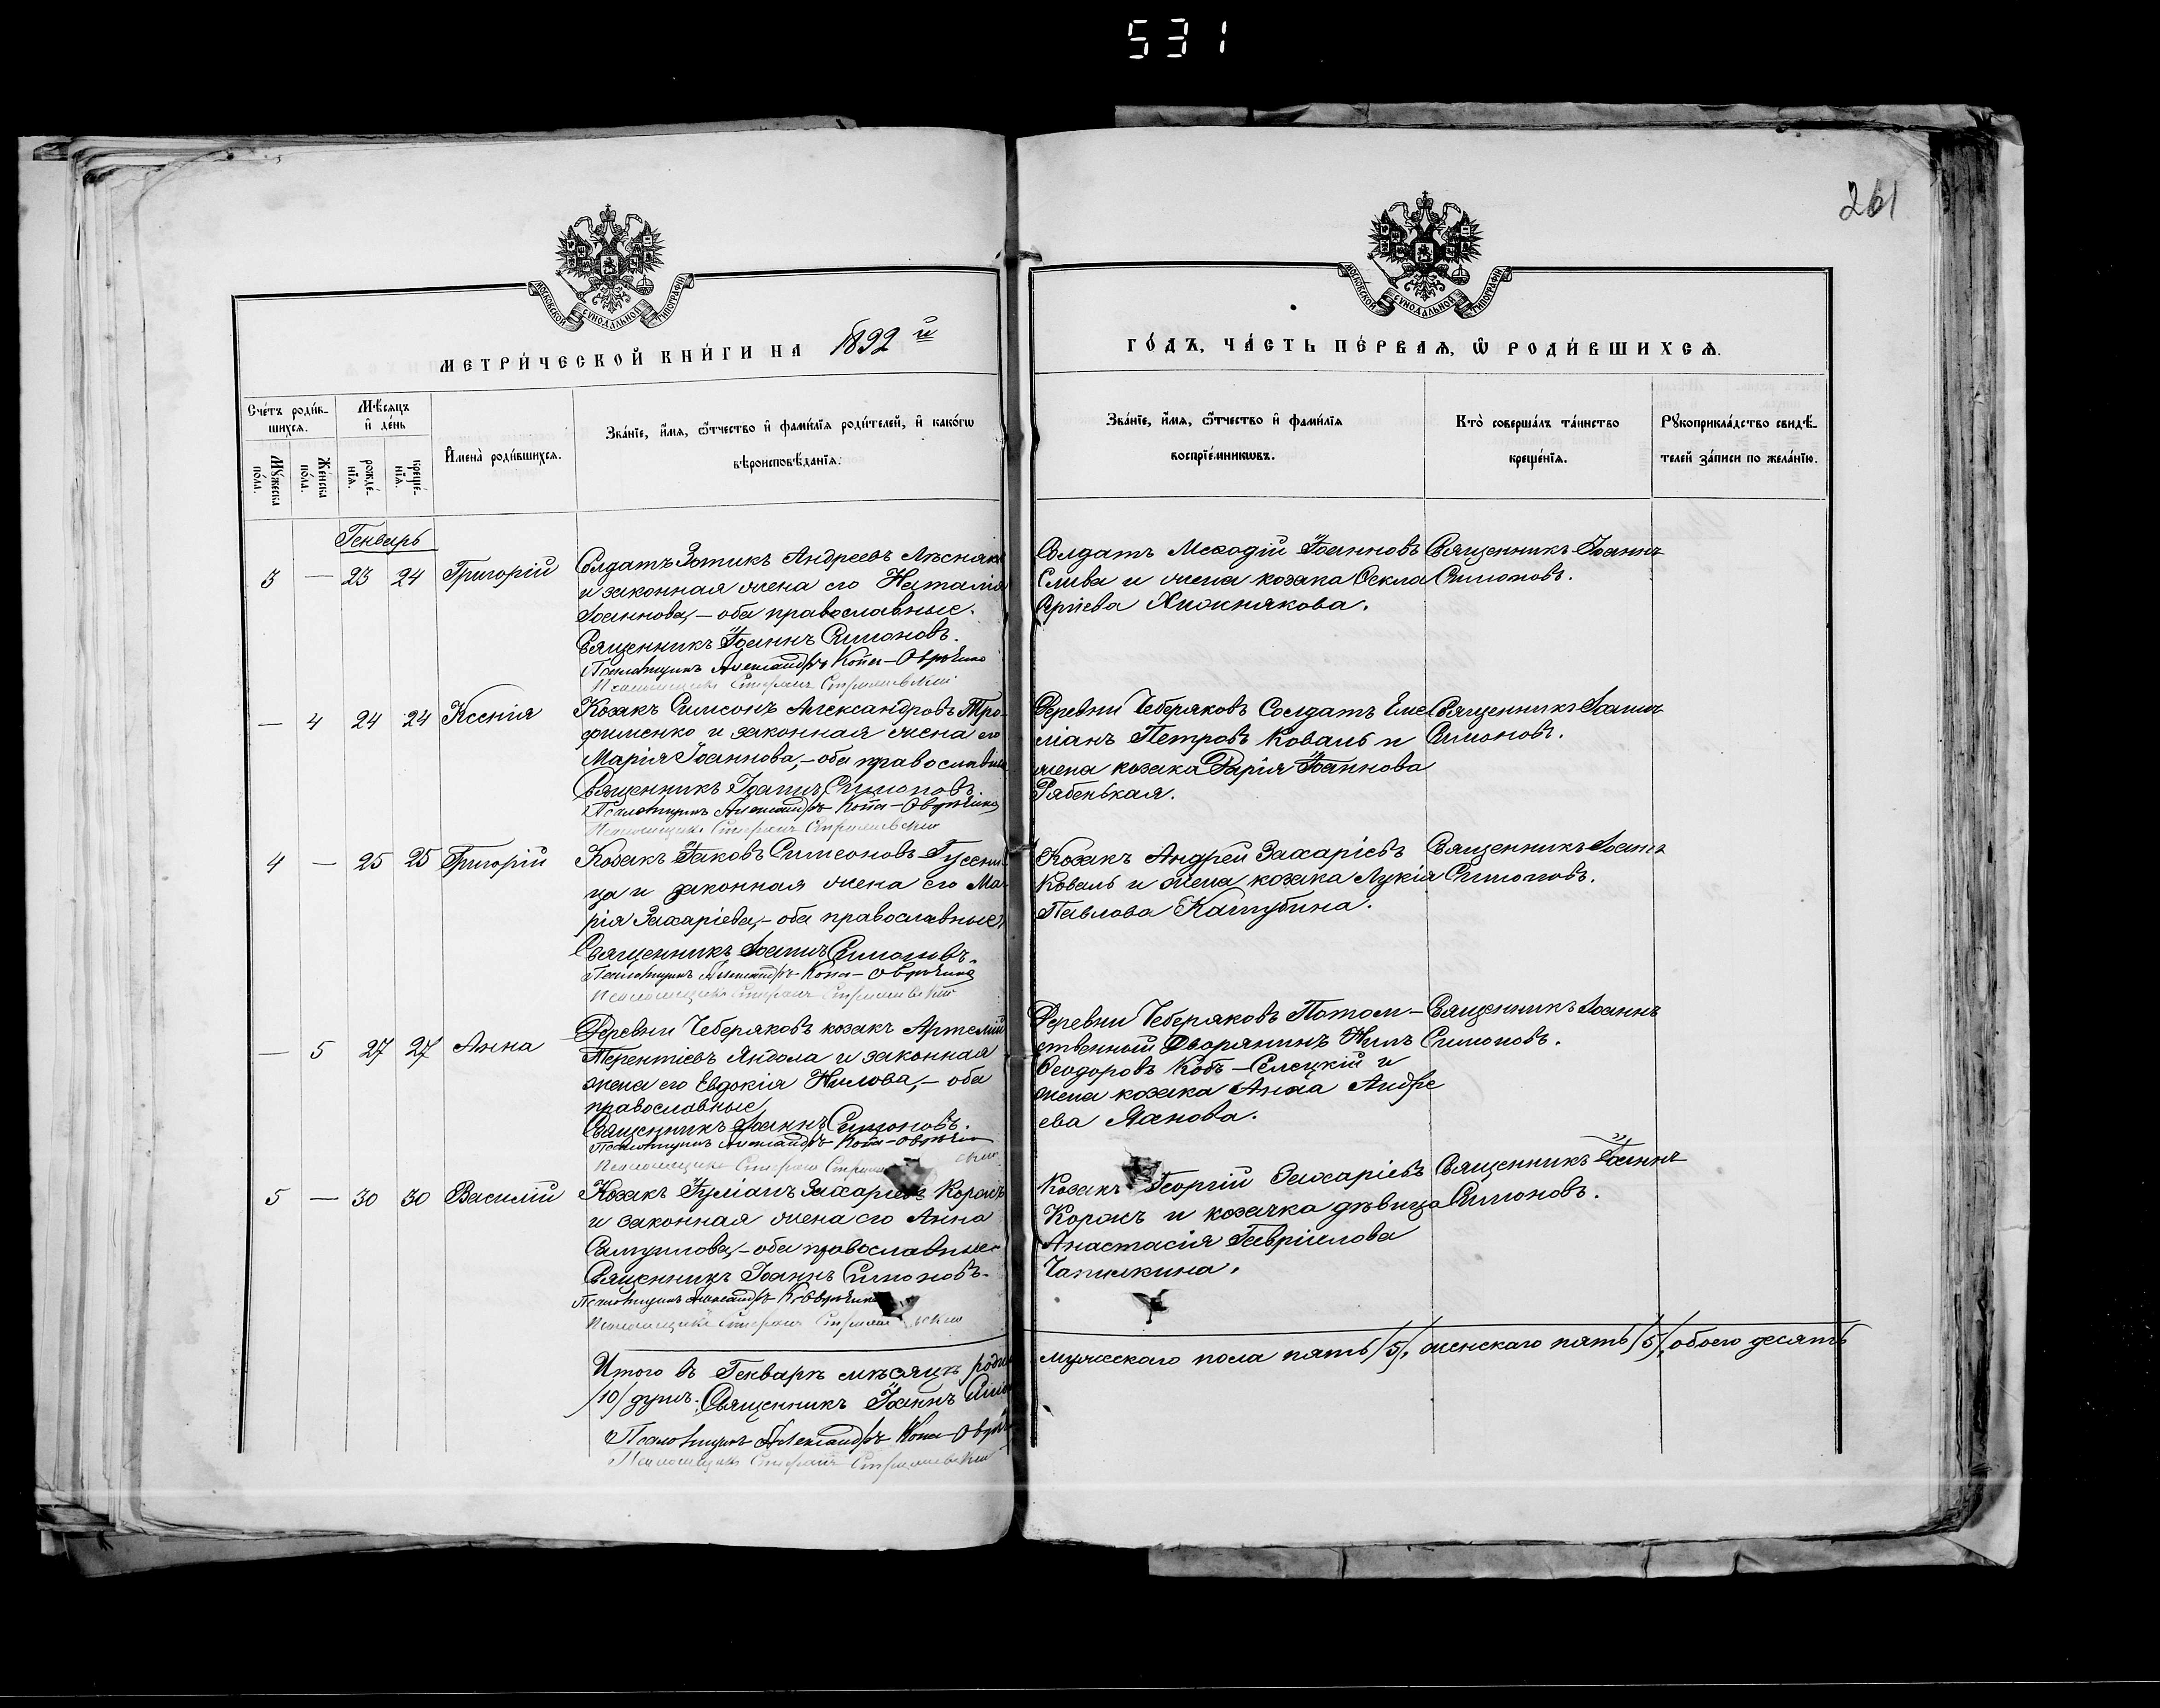 531
261
МОСКОВСКОЙ СѴНОДАЛЬНОЙ ТИПОГРАФІИ
МОСКОВСКОЙ СѴНОДАЛЬНОЙ ТИПОГРАФІИ
МЕТРИ́ЧЕСКОЙ КНИ́ГИ НА 1892 й
ГО́ДЪ, ЧА́СТЬ ПЕ́РВАЯ, Ѡ҆ РОДИ́ВШИХСѦ.
Сче́тъ роди́в-
шихся.
Мѣ́сяцъ
и҆ де́нь
Му́жеска по́ла.
Же́нска по́ла.
рожде́-
нїя.
креще́-
нїя.
И҆мена̀ роди́вшихся.
Зва́нїе, и҆́мя, ѻ҆́тчество и҆ фами́лїя роди́телей, и҆ како́гѡ
вѣроисповѣ́данїя.
Зва́нїе, и҆́мя, ѻ҆́тчество и҆ фами́лїя
воспрїе́мникѡвъ.
Кто̀ соверша́лъ та́инство
креще́нїя.
Рꙋкоприкла́дство свидѣ́-
телей за́писи по жела́нїю.
Генварь
3 — 23 24 Григорій
Солдатъ Зотикъ Андреевъ Лѣсняк
и законная жена его Наталія
Іоаннова, — оба православные.
Священникъ Іоаннъ Симоновъ.
Псаломщикъ Александръ Копа-Овдіенко
Псаломщикъ Стефанъ
Солдатъ Меѳодій Іоанновъ
Слива и жена козака Ѳекла
Сергіева Хижнякова.
Священникъ Іоаннъ
Симоновъ.
— 4 24 24 Ксенія
Козакъ Симеонъ Александровъ Тро-
фименко и законная жена его
Марія Іоаннова, — оба православные
Священникъ Іоаннъ Симоновъ.
Псаломщикъ Александръ Копа-
Псаломщикъ Стефанъ
Деревни Чеберяковъ Солдатъ Еме
ліанъ Петровъ Коваль и
жена козака Дарія Іоаннова
Рябенькая.
Священникъ Іоаннъ
Симоновъ.
4 — 25 25 Григорій
Козакъ Іаковъ Симеоновъ Гусени-
ца и законная жена его Ма-
рія Захаріева, — оба православные
Священникъ Іоаннъ Симоновъ.
Псаломщикъ Александръ Копа-
Псаломщикъ Стефанъ
Козакъ Андрей Захаріевъ
Коваль и жена козака Лукія
Павлова Кашубина.
Священникъ Іоаннъ
Симоновъ.
— 5 27 27 Анна
Деревни Чеберяковъ козакъ Артемій
Терентіевъ Яндола и законная
жена его Евдокія Нилова, — оба
православные
Священникъ Іоаннъ Симоновъ.
Псаломщикъ Александръ Копа-
Псаломщикъ Стефанъ
Деревни Чеберяковъ Потом-
ственный Дворянинъ Нилъ
Ѳеодоровъ Кобъ-Селецкій и
жена козака Анна Андре
ева Яхнова.
Священникъ Іоаннъ
Симоновъ.
5 — 30 30 Василій
Козакъ Іуліанъ Захаріевъ Корокъ
и законная жена его Анна
Самуилова, — оба православные
Священникъ Іоаннъ Симоновъ.
Псаломщикъ Александръ
Псаломщикъ Стефанъ
Козакъ Георгій Захаріевъ
Корокъ и козачка дѣвица
Анастасія Гавріилова
Чапикина.
Священникъ Іоаннъ
Симоновъ.
Итого въ Генварѣ мѣсяцѣ
мужескаго пола пять /5/, женскаго пять /5/, обоего десять
/10/ душъ. Священникъ Іоаннъ
Псаломщикъ Александръ Копа-
Псаломщикъ Стефанъ